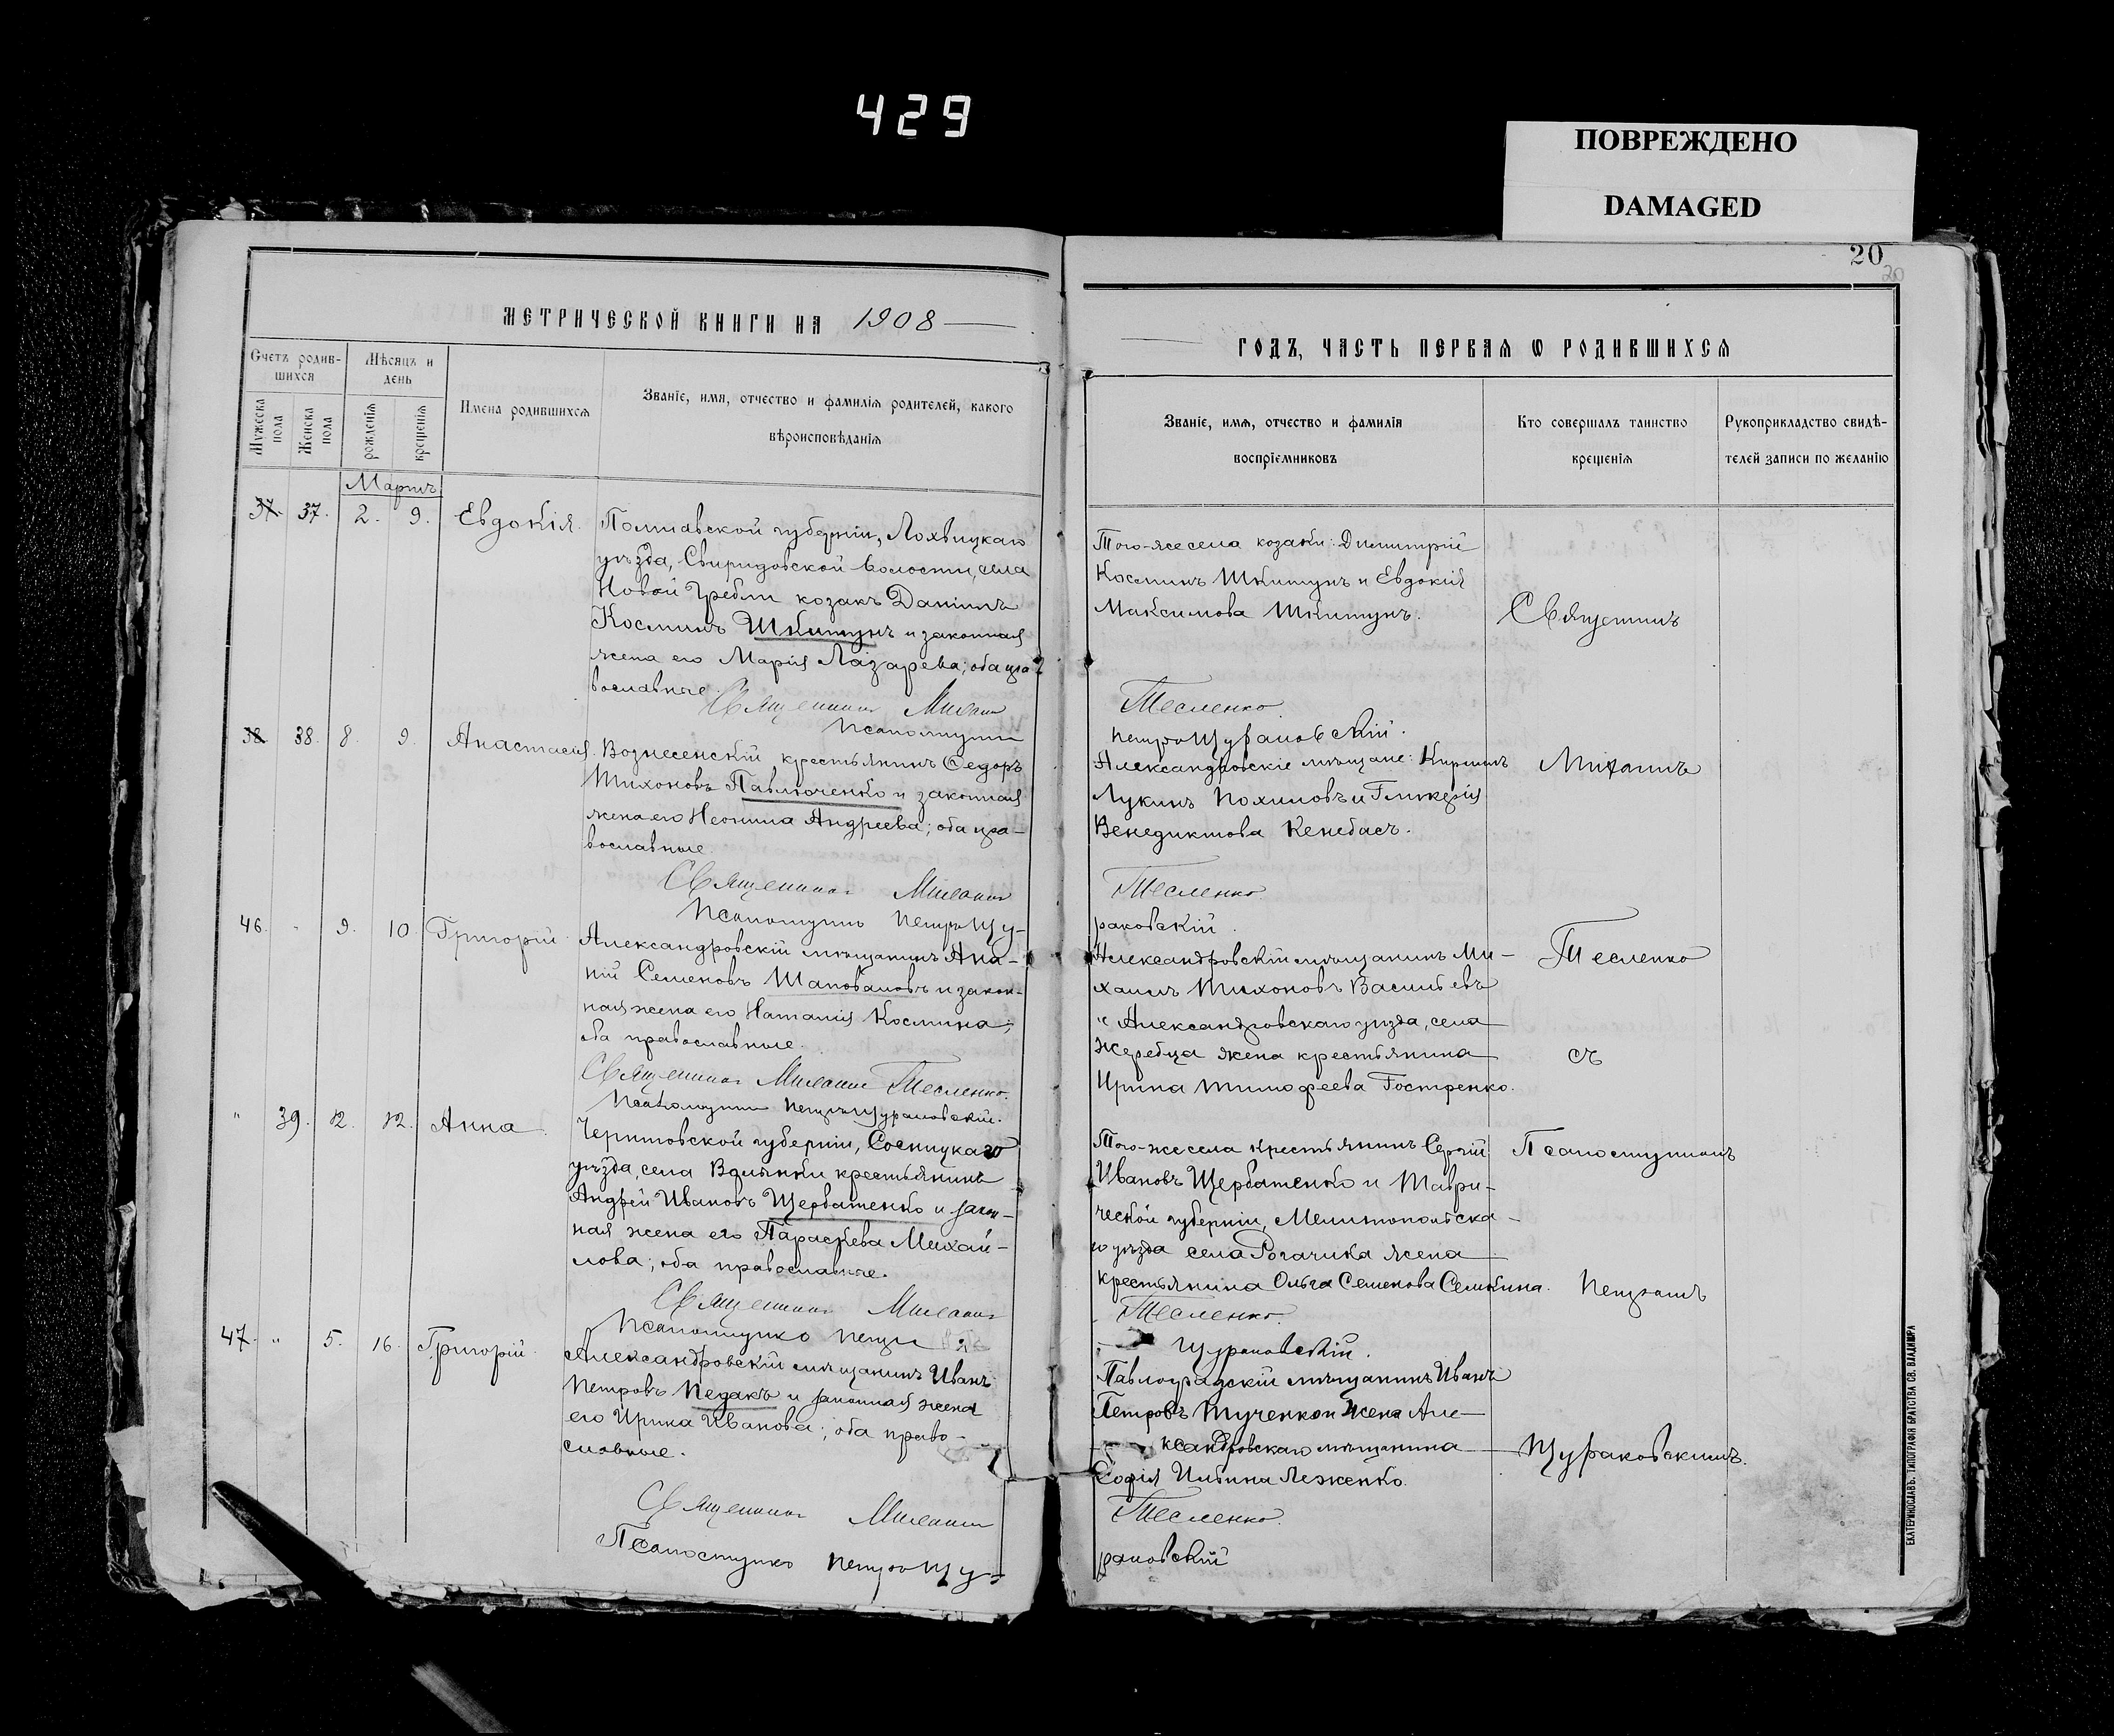 429
ПОВРЕЖДЕНО
DAMAGED
20
20
МЕТРИЧЕСКОЙ КНИГИ НА 1908
Счетъ родив-
шихся
Мѣсяцъ и
день
Мужеска
пола
Женска
пола
рожденія
крещенія
Имена родившихся
Званіе, имя, отчество и фамилія родителей, какого
вѣроисповѣданія
Мартъ
37. 37. 2. 9. Евдокія.
Полтавской губерніи, Лохвицкаго
уѣзда, Свиридовской волости, села
Новой Гребли козакъ Даніилъ
Косминъ Шкитунъ и законная
жена его Марія Лазарева; оба пра-
вославные.
Священникъ Михаилъ
Псаломщикъ
38. 38. 8. 9. Анастасія.
Вознесенскій крестьянинъ Ѳедоръ
Тихоновъ Павлюченко и законная
жена его Неонила Андреева; оба пра-
вославные.
Священникъ Михаилъ
Псаломщикъ Петръ Щу-
46. " 9. 10. Григорій.
Александровскій мѣщанинъ Ана-
ній Семеновъ Шаповаловъ и закон-
ная жена его Наталія Космина;
оба православные.
Священникъ Михаилъ Тесленко.
Псаломщикъ Петръ Щураковскій.
" 39. 12. 12. Анна.
Черниговской губерніи, Сосницкаго
уѣзда, села крестьянинъ
Андрей Ивановъ Щербатенко и закон-
ная жена его Параскева Михай-
лова; оба православные.
Священникъ Михаилъ
Псаломщикъ Петръ
47. " 5. 16. Григорій.
Александровскій мѣщанинъ Иванъ
Петровъ Педакъ и законная жена
его Ирина Иванова; оба право-
славные.
Священникъ Михаилъ
Псаломщикъ Петръ Щу-
ГОДЪ, ЧАСТЬ ПЕРВАЯ Ѡ РОДИВШИХСЯ
Званіе, имя, отчество и фамилія
воспріемниковъ
Кто совершалъ таинство
крещенія
Рукоприкладство свидѣ-
телей записи по желанію
Того-же села козаки: Димитрій
Косминъ Шкитунъ и Евдокія
Максимова Шкитунъ.
Тесленко
Петръ Щураковскій.
Александровскіе мѣщане: Кириллъ
Лукинъ Похиловъ и Гликерія
Венедиктова Кенебасъ.
Тесленко.
раковскій.
Александровскій мѣщанинъ Ми-
хаилъ Тихоновъ Васильевъ
и Александровскаго уѣзда, села
Жеребца жена крестьянина
Ирина Тимофеева Гостренко.
Того-же села крестьянинъ Сергій
Ивановъ Щербатенко и Таври-
ческой губерніи, Мелитопольска-
го уѣзда села Рогачика жена
крестьянина Ольга Семенова Семкина.
Тесленко.
Щураковскій.
Павлоградскій мѣщанинъ Иванъ
Петровъ Тученко и жена Але-
ксандровскаго мѣщанина
Софія Ильина Леженко.
Тесленко.
раковскій
Священникъ
Михаилъ
Тесленко
съ
Псаломщикомъ
Петромъ
Щураковскимъ.
ЕКАТЕРИНОСЛАВЪ. ТИПОГРАФІЯ БРАТСТВА СВ. ВЛАДИМІРА